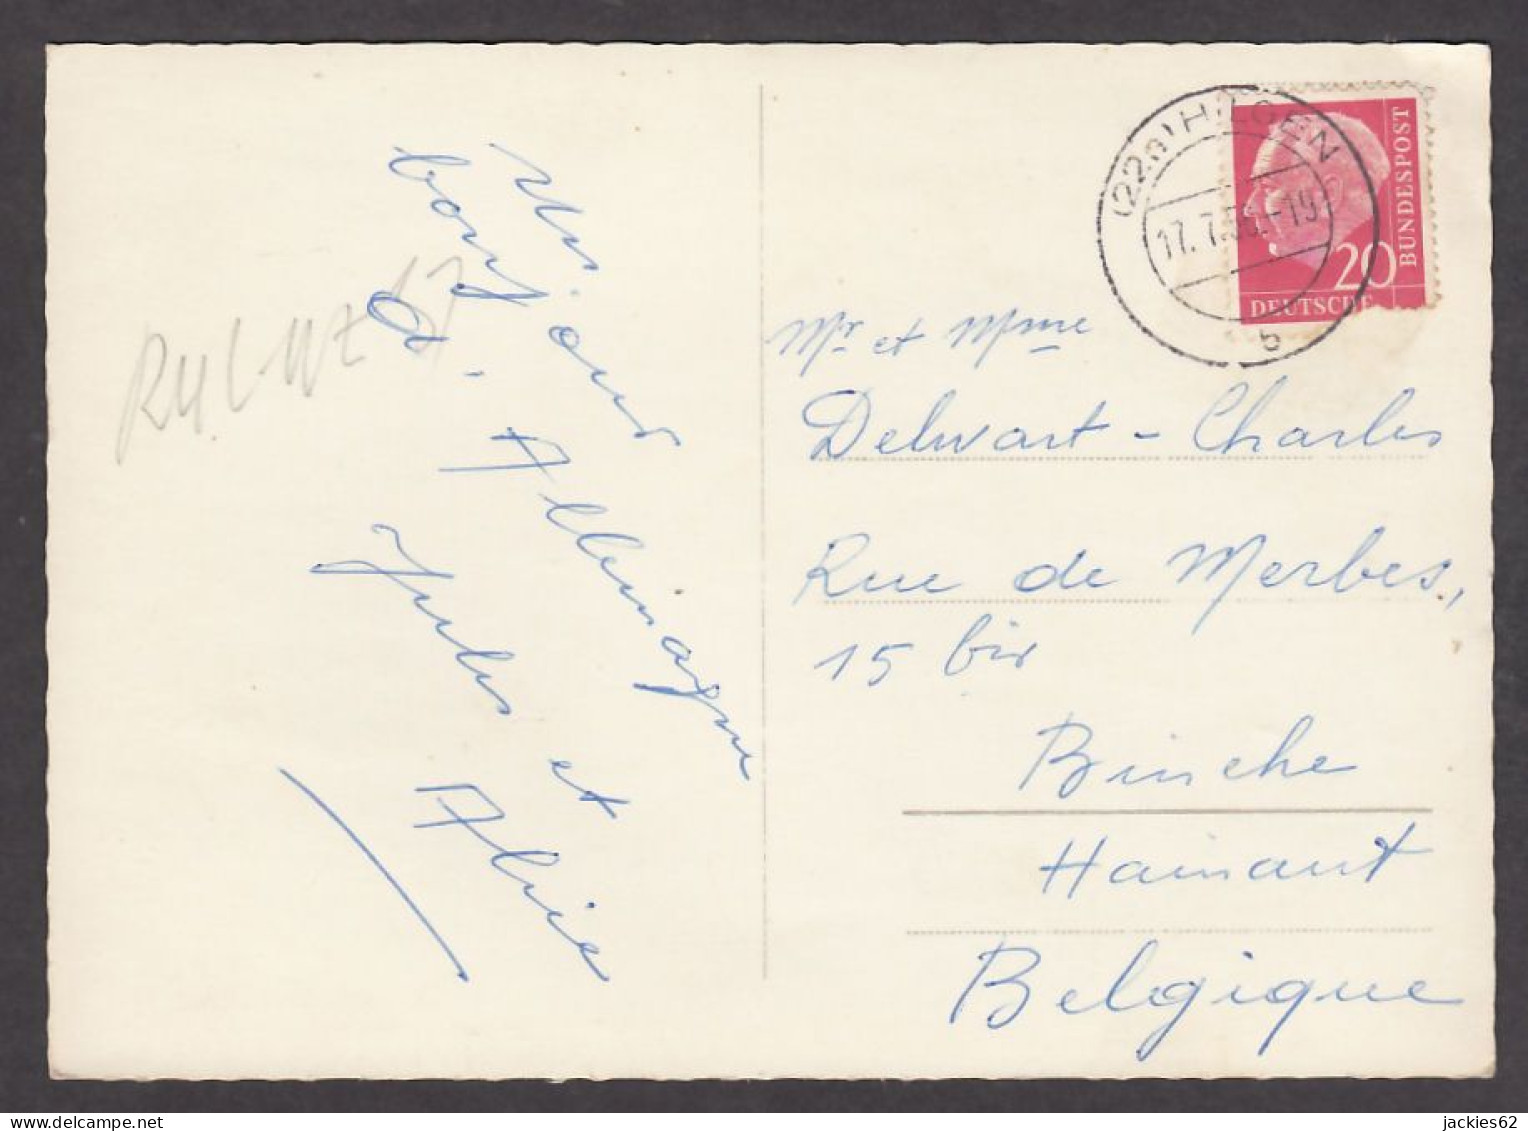 Un
bonjour
d'Allemagne
Jules et
Alice
(22a) HILGEN
17.7.56.-19
b
20
DEUTSCHE
BUNDESPOST
Mr et Mme
Delwart - Charles
Rue de Merbes,
15 bis
Binche
Hainaut
Belgique
jackies62